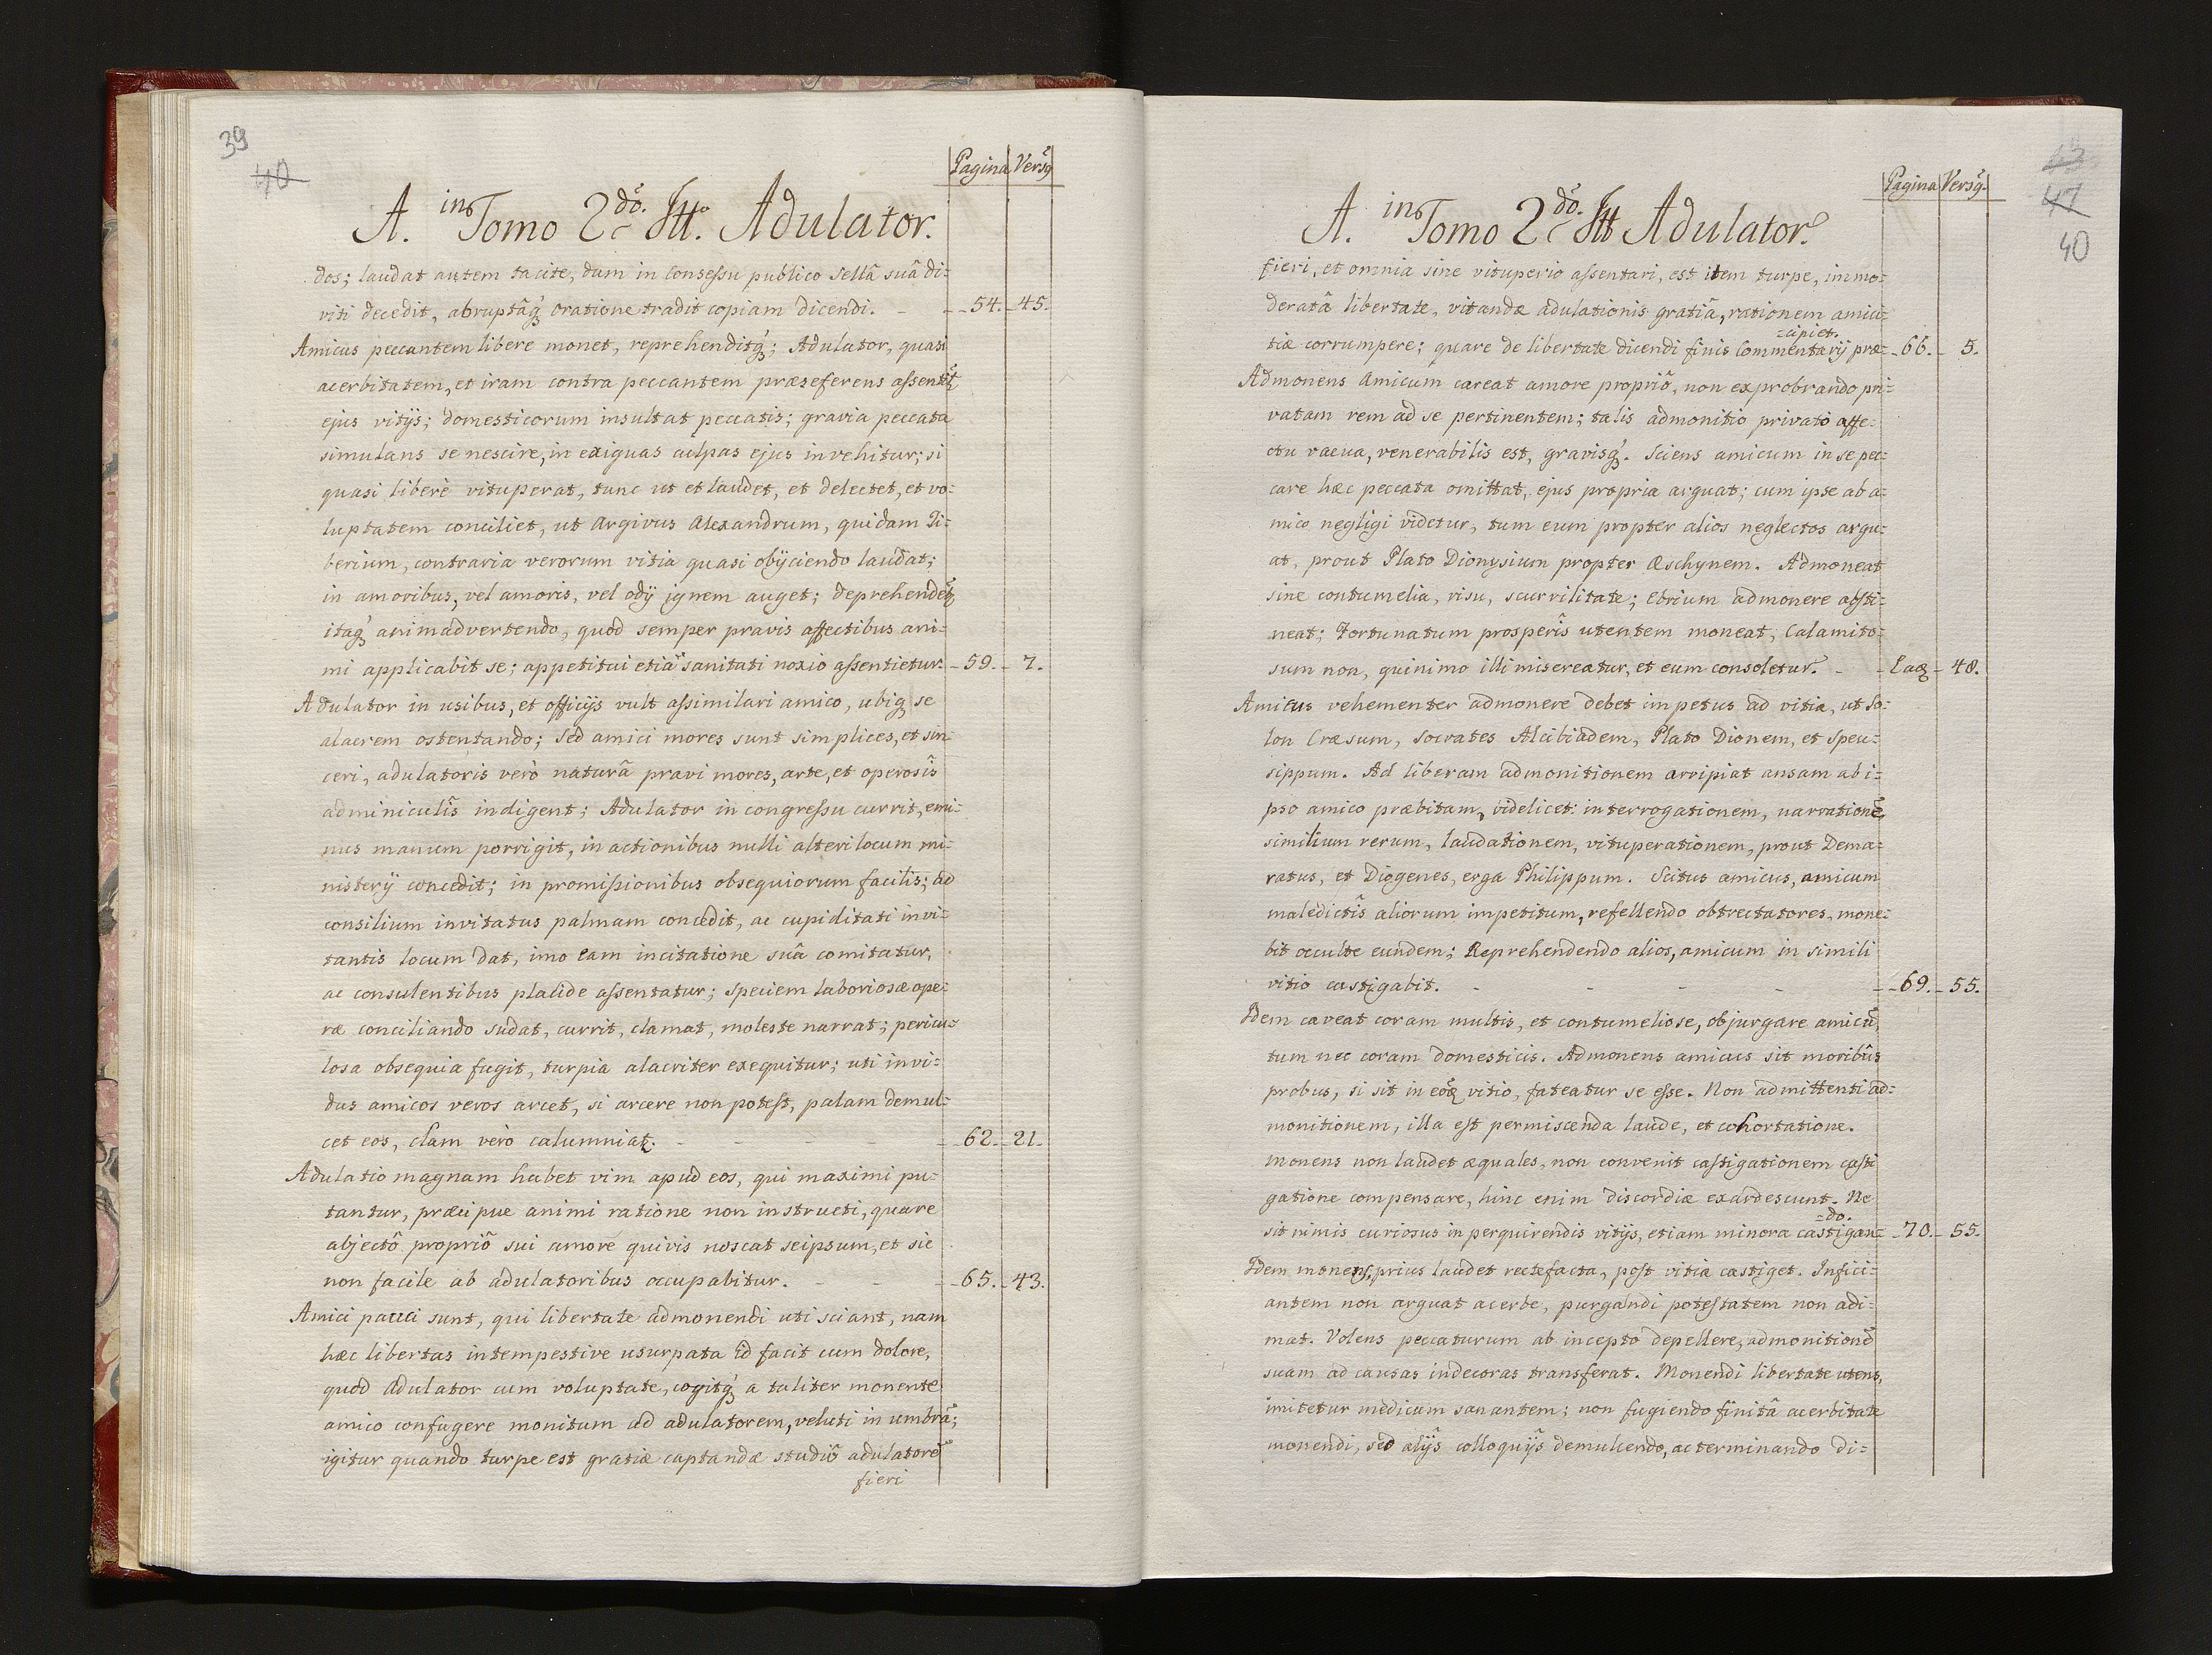 39
40
Pagina Versq
A. in Tomo 2do. Ltt. Adulator.
dos; laudat autem tacite, dum in Consessu publico sellâ suâ di=
viti decedit, abruptâq́ oratione tradit copiam dicendi. - 54. 45.
Amicus peccantem libere monet, reprehenditq́; Adulator, quasi
acerbitatem, et iram contra peccantem præseferens assentit
ejus vitijs; domesticorum insultat peccatis; gravia peccata
simulans se nescire, in exiguas culpas ejus invehitur; si
quasi liberè vituperat, tunc ut et laudet, et delectet, et vo=
luptatem conciliet, ut Argivus Alexandrum, quidam Ti=
berium, contraria verorum vitia quasi obijciendo laudat;
in amoribus, vel amoris, vel odij ignem auget; deprehendet
itaq́ animadvertendo, quod semper pravis affectibus ani=
mi applicabit se; appetitui etiã sanitati noxio assentietur. - 59. - 7.
Adulator in usibus, et officijs vult assimilari amico, ubiq se
alacrem ostentando; sed amici mores sunt simplices, et sin=
ceri, adulatoris verò naturâ pravi mores, arte, et operosîs
adminiculîs indigent; Adulator in congressu currit, emi=
nus manum porrigit, in actionibus nulli alteri locum mi=
nisterij concedit; in promissionibus obsequiorum facilis; ad
consilium invitatus palmam concedit, ac cupiditati invi=
tantis locum dat, imo eam incitatione suâ comitatur,
ac consulentibus placide assentatur; speciem laboriosæ ope=
ræ conciliando sudat, currit, clamat, moleste narrat; pericu=
losa obsequia fugit, turpia alacriter exequitur; uti invi=
dus amicos veros arcet, si arcere non potest, palam demul=
cet eos, clam verò calumniat. - 62. - 21.
Adulatio magnam habet vim apud eos, qui maximi pu=
tantur, præcipue animi ratione non instructi, quare
abjectô propriô sui amore quivis noscat seipsum, et sic
non facile ab adulatoribus occupabitur. - 65. - 43.
Amici pauci sunt, qui libertate admonendi uti sciant, nam
hæc libertas intempestive usurpata id facit cum dolore,
quod Adulator cum voluptate, cogitq́ a taliter monente
amico confugere monitum ad adulatorem, veluti in umbrã;
igitur quando turpe est gratiæ captandæ studiô adulatorẽ
fieri
43
47
40
Pagina Versq.
A. in Tomo 2do. Ltt Adulator.
fieri, et omnia sine vituperio assentari, est item turpe, immo=
deratâ libertate, vitandæ adulationis gratiâ, rationem amici=
=cipiet.
tiæ corrumpere; quare de libertate dicendi finis Commentarij præ= - 66. - 5.
Admonens Amicum careat amore propriô, non exprobrando pri=
vatam rem ad se pertinentem; talis admonitio privatô affe=
ctu vacua, venerabilis est, gravisq́. Sciens amicum in se pec=
care hæc peccata omittat, ejus propria arguat; cum ipse ab a=
mico negligi videtur, tum eum propter alios neglectos argu=
at, prout Plato Dionysium propter Æschynem. Admoneat
sine contumelia, risu, scurrilitate; Ebrium admonere absti=
neat; Fortunatum prosperis utentem moneat, Calamito=
sum non, quinimo illi misereatur, et eum consoletur. - Eaq - 48.
Amicus vehementer admonere debet impetus ad vitia, ut So=
lon Cræsum, Socrates Alcibiadem, Plato Dionem, et Speu=
sippum. Ad liberam admonitionem arripiat ansam ab i=
pso amico præbitam, videlicet: interrogationem, narrationẽ
similium rerum, laudationem, vituperationem, prout Dema=
ratus, et Diogenes, erga Philippum. Scitus amicus, amicum
maledictîs aliorum impetitum, refellendo obtrectatores, mone=
bit occulte eundem; Reprehendendo alios, amicum in simili
vitio castigabit. - - - - 69. - 55.
Idem caveat coram multis, et contumeliose, objurgare amicũ,
tum nec coram domesticis. Admonens amicus sit moribûs
probus, si sit in eõđ vitio, fateatur se esse. Non admittenti ad=
monitionem, illa est permiscenda laude, et cohortatione.
Monens non laudet æquales, non convenit castigationem casti
gatione compensare, hinc enim discordiæ exardescunt. Ne
=do.
sit nimis curiosus in perquirendis vitijs, etiam minora castigan= - 70. - 55.
Idem monens, prius laudet rectefacta, post vitia castiget. Infici=
antem non arguat acerbe, purgandi potestatem non adi=
mat. Volens peccaturum ab incepto depellere, admonitionẽ
suam ad causas indecoras transferat. Monendi libertate utens,
imitetur medicum sanantem; non fugiendo finitâ acerbitate
monendi, sed alijs colloquijs demulcendo, ac terminando di=